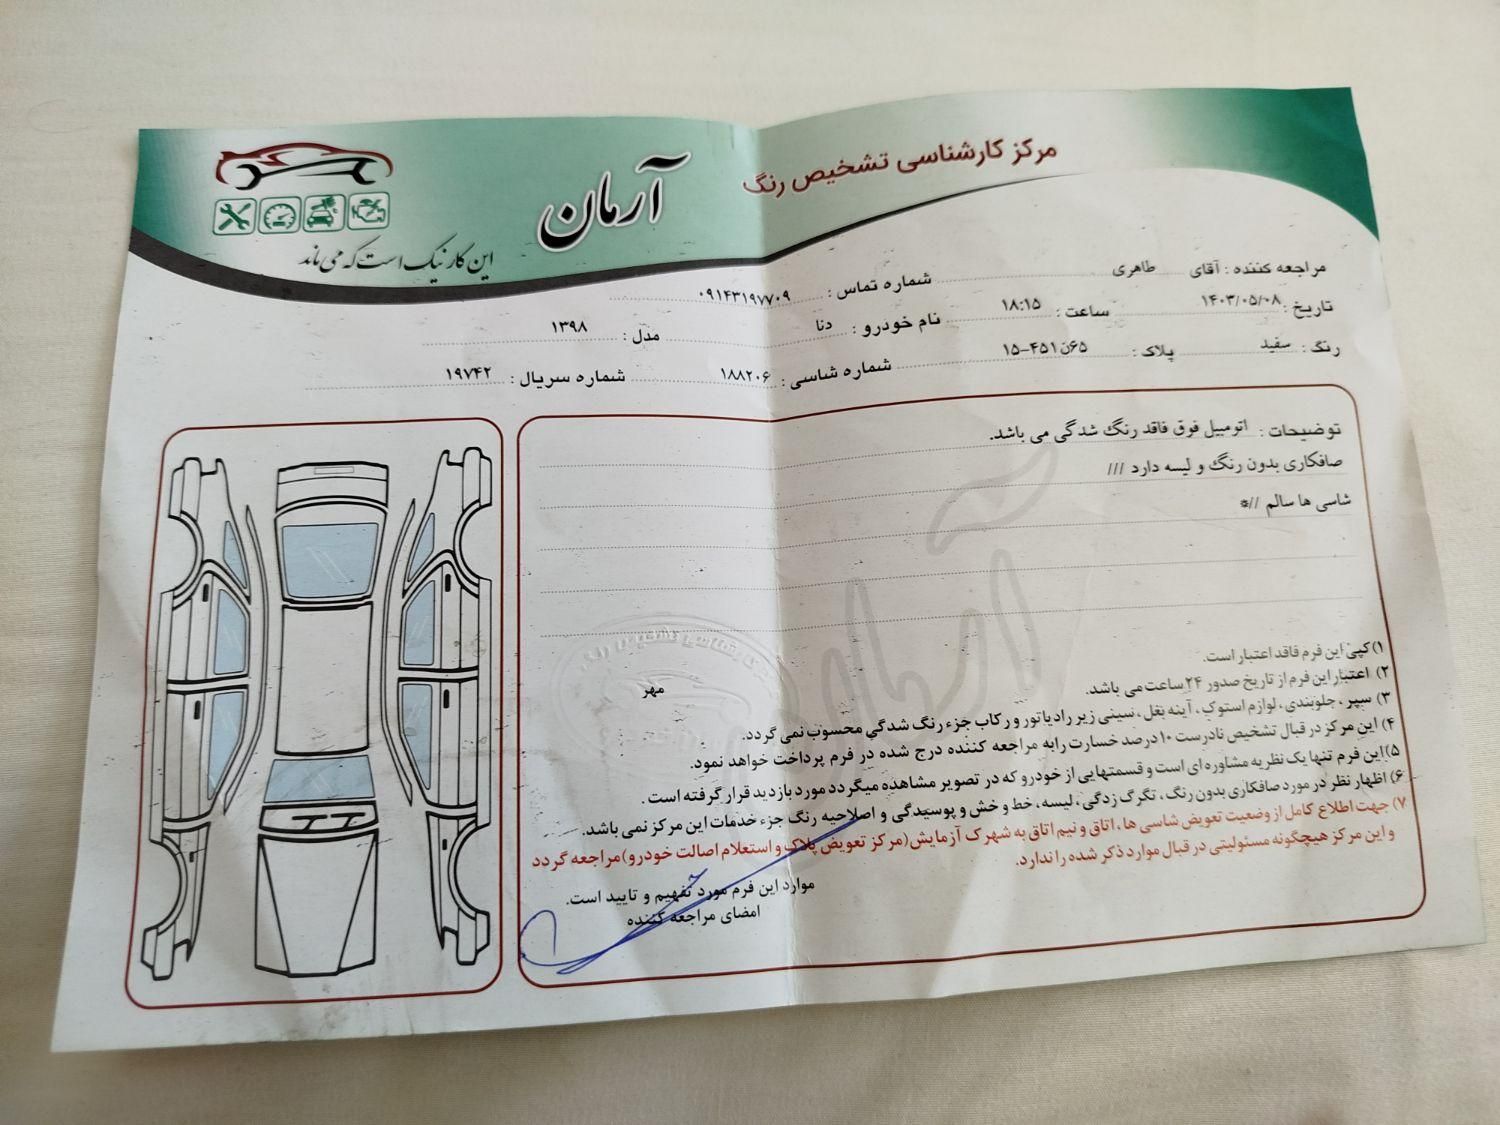 مرکز کارشناسی تشخیص رنگ
آرمان
این کار نیک است که می ماند
مراجعه کننده : آقای طاهری شماره تماس : ۰۹۱۴۳۱۹۷۷۰۹
تاریخ : ۱۴۰۳/۰۵/۰۸ ساعت : ۱۸:۱۵ نام خودرو : دنا مدل : ۱۳۹۸
رنگ : سفید پلاک : ۶۵ن۴۵۱-۱۵ شماره شاسی : ۱۸۸۲۰۶ شماره سریال : ۱۹۷۴۲
توضیحات : اتومبیل فوق فاقد رنگ شدگی می باشد.
صافکاری بدون رنگ و لیسه دارد ///
شاسی ها سالم //*
مهر
۱) کپی این فرم فاقد اعتبار است.
۲) اعتبار این فرم از تاریخ صدور ۲۴ ساعت می باشد.
۳) سپر ، جلوبندی ، لوازم استوک ، آینه بغل ، سینی زیر رادیاتور و رکاب جزء رنگ شدگی محسوب نمی گردد.
۴) این مرکز در قبال تشخیص نادرست ۱۰ درصد خسارت را به مراجعه کننده درج شده در فرم پرداخت خواهد نمود.
۵) این فرم تنها یک نظریه مشاوره ای است و قسمتهایی از خودرو که در تصویر مشاهده میگردد مورد بازدید قرار گرفته است .
۶) اظهار نظر در مورد صافکاری بدون رنگ ، تگرگ زدگی ، لیسه ، خط و خش و پوسیدگی و اصلاحیه رنگ جزء خدمات این مرکز نمی باشد.
۷) جهت اطلاع کامل از وضعیت تعویض شاسی ها ، اتاق و نیم اتاق به شهرک آزمایش(مرکز تعویض پلاک و استعلام اصالت خودرو)مراجعه گردد
و این مرکز هیچگونه مسئولیتی در قبال موارد ذکر شده را ندارد.
موارد این فرم مورد تفهیم و تایید است.
امضای مراجعه کننده